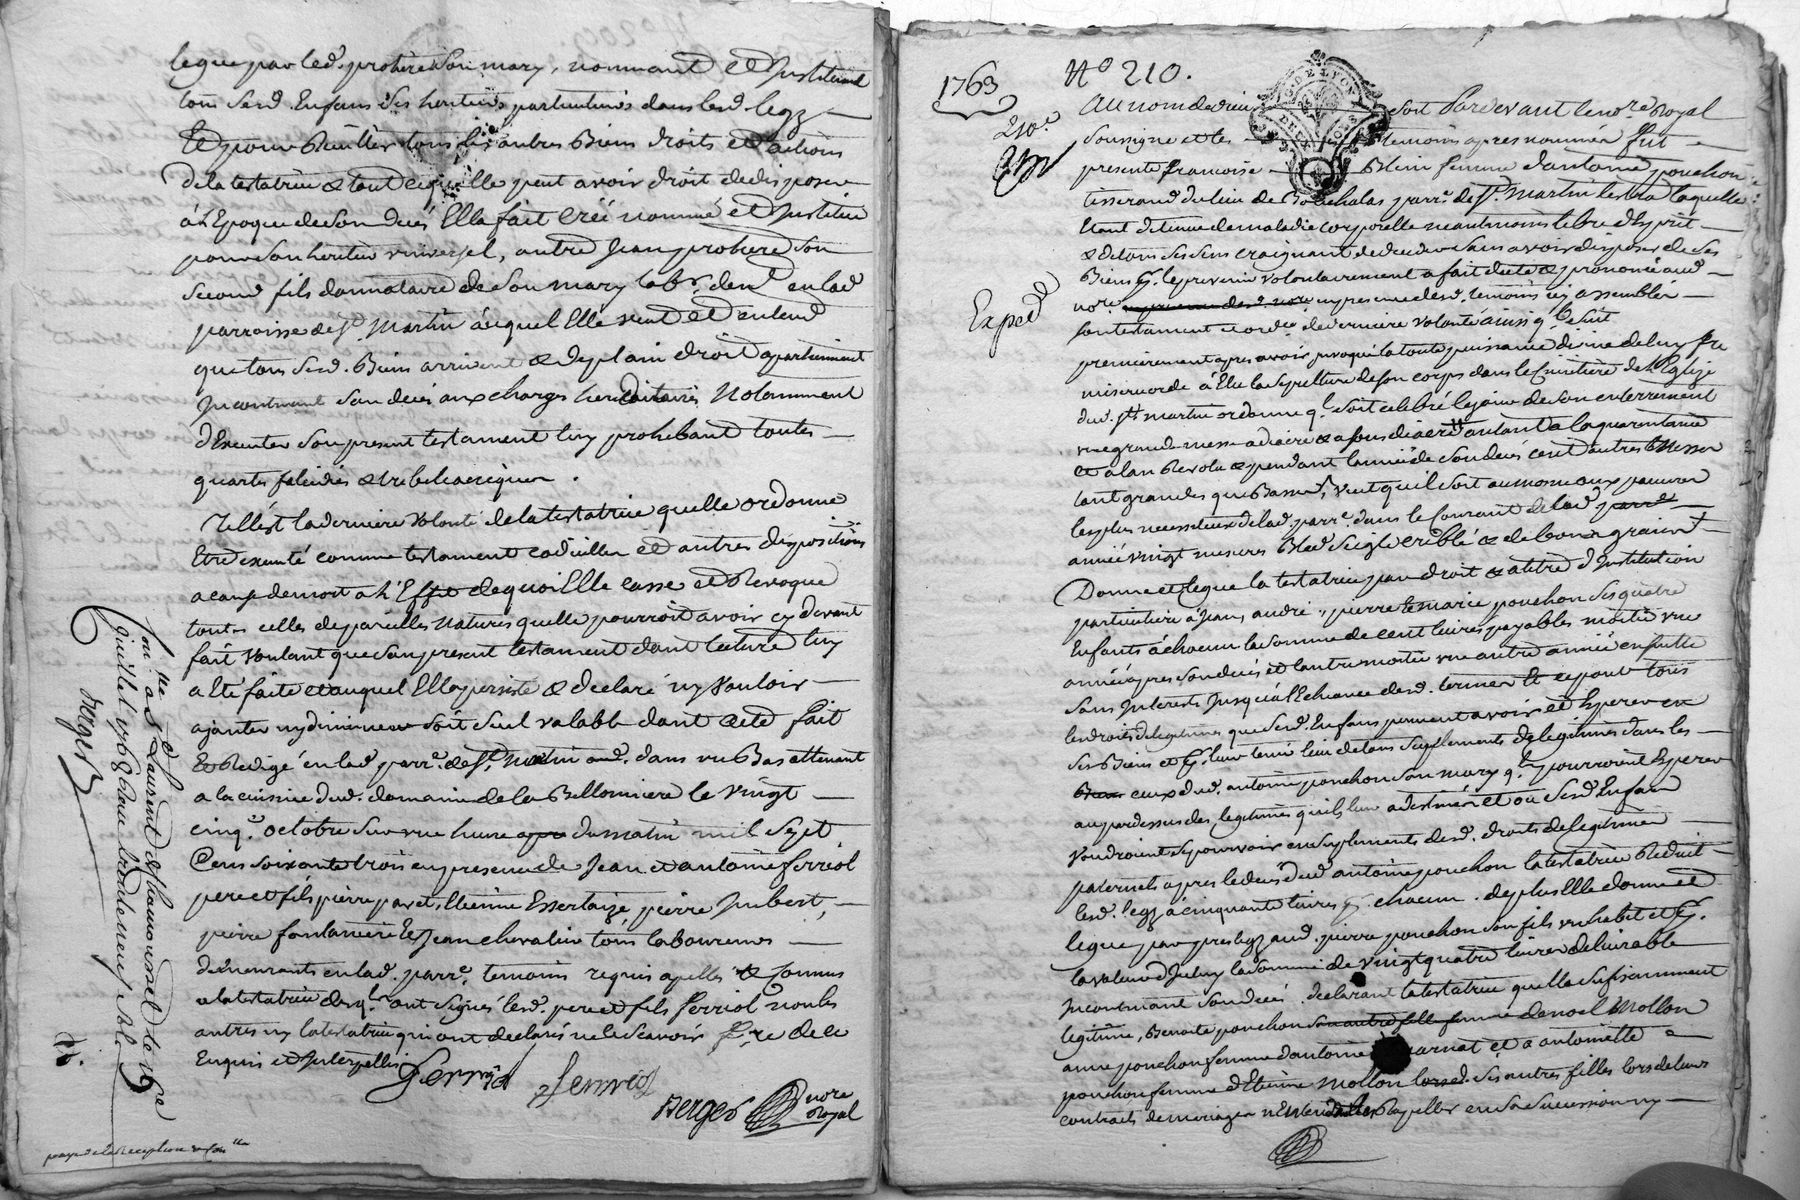 legué par led. prohere son mary, nommant et Instituant
tous sesd. Enfans ses heritiers particuliers dans lesd. legz
Et pour Resider tous les autres Biens droits et actions
de la testatrice & tout ce quelle peut avoir droit de disposer
à L'Epoque de son decés Elle fait creé nommé et Institue
pour son heritier universel, autre Jean prohere son
second fils donnataire de son mary labr. demt. en lad.
parroisse de St. Martin auquel Elle veut et entend
que tous sesd. Biens arrivent & de plain droit apartiennent
Incontinent son decés aux charges hereditaires Notamment
d'Executer son present testament luy prohibant toutes
quartes falcidies & trebelianiques.
Tell'est la derniere Volonté de la testatrice quelle ordonne
Etre executé comme testament codicille et autres dispositions
a cause de mort a L'Effet de quoi Elle casse et Revoque
toutes celles de pareilles Natures quelle pourroit avoir cy devant
fait Voulant que son present testament dont lecture luy
a Eté faite et auquel Elle persiste & declaré ny Vouloir
ajouter ny diminuer soit seul valable dont acte fait
Et Redigé en lad. parre. de St. Martin aud. dans un Bas attenant
a la cuisine dud. domaine de la Bellonniere le Vingt
cinqe. octobre sur une heure du matin mil sept
Cens soixante trois en presence de Jean et antoine ferriol
pere et fils pierre pavet, Etienne Essertaize, pierre Imbert,
pierre fontaniere Et Jean chevalier tous laboureurs
demeurants en lad. parre. temoins requis apellés & Connus
a la testatrice desqls. ont signés lesd. pere et fils ferriol non les
autres ny la testatrice qui ont declarés ne le scavoir fre. de ce
Enquis et Interpellés
ferriol ferriol
Berger nore Royal
Conlle. a St Laurent de chamousset le 19
juillet 1768 Reçu trente neuf sols
Berger
1763 No 210.
210e
Exped
Au nom de dieu soit Pardevant le nore. Royal
soussigné et les temoins apres nommés fut
presente francoise Blein femme d'antoine pouchon
tisserand du lieu de parre. de St. Martin lestra laquelle
Etant detenue de maladie corporelle neantmoins libre d'Esprit
& de tous ses sens craignant de deceder sans avoir disposer de ses
Biens & le prevenir volontairement a fait dicté & prononcé aud.
nore. en presence desd. temoins icy assemblés
son testament et ordce. de derniere Volonté ainsi ql. suit
premierement apres avoir invoqué la toute puissance divine de luy fre
misericorde à Elu la sepulture de son corps dans le Cimitière de L'Eglise
dud. St. martin ordonne ql. soit celebré le jour de son enterrement
une grande messe a diacre & a sous diacre autant a la quarantaine
et a l'an Revolu & pendant l'année de son decés cent autres Messes
tant grandes que Basses, Veut quil soit aumoné aux pauvres
les plus necessiteux de lad. parre. dans le Courant de lad.
année vingt mesures Bled seigle criblé & de bons grains
Donne et legue la testatrice par droit & a titre d'Institution
particuliere à Jean, andré, pierre Et marie pouchon ses quatre
Enfants à chacun la somme de cent livres payables moitié une
année apres son decés et l'autre moitié une autre année ensuitte
sans Interets Jusqu'a l'Echeance desd. termes Et ce pour tous
les droits de legitimes que sesd. Enfans peuvent avoir et Esperer en
ses Biens et leur tenir lieu de tous suplements de legitimes dans les
ceux dud. antoine pouchon son mary qls. y pourroient Esperer
au pardessus des legitimes quil leur a destinés et ou sesd. Enfans
voudroient se pourvoir en suplements desd. droits de legitimes
paternels apres le decés dud antoine pouchon la testatrice Reduit
lesd. legz à cinquante livres pr. chacun. de plus Elle donne et
legue par prelegz aud. pierre pouchon son fils un habit et
la valeur d'Iceluy la somme de vingt quatre livres delivrable
Incontinent son decés. declarant la testatrice quelle a sufisamment
legitimé, Benoite pouchon femme de noel Mollon
anne pouchon femme d'antoine et a antoinette
pouchon femme d'Etienne Mollon ses autres filles lors de leurs
contracts de mariages n'Entend les Rapeller en sa succession ny